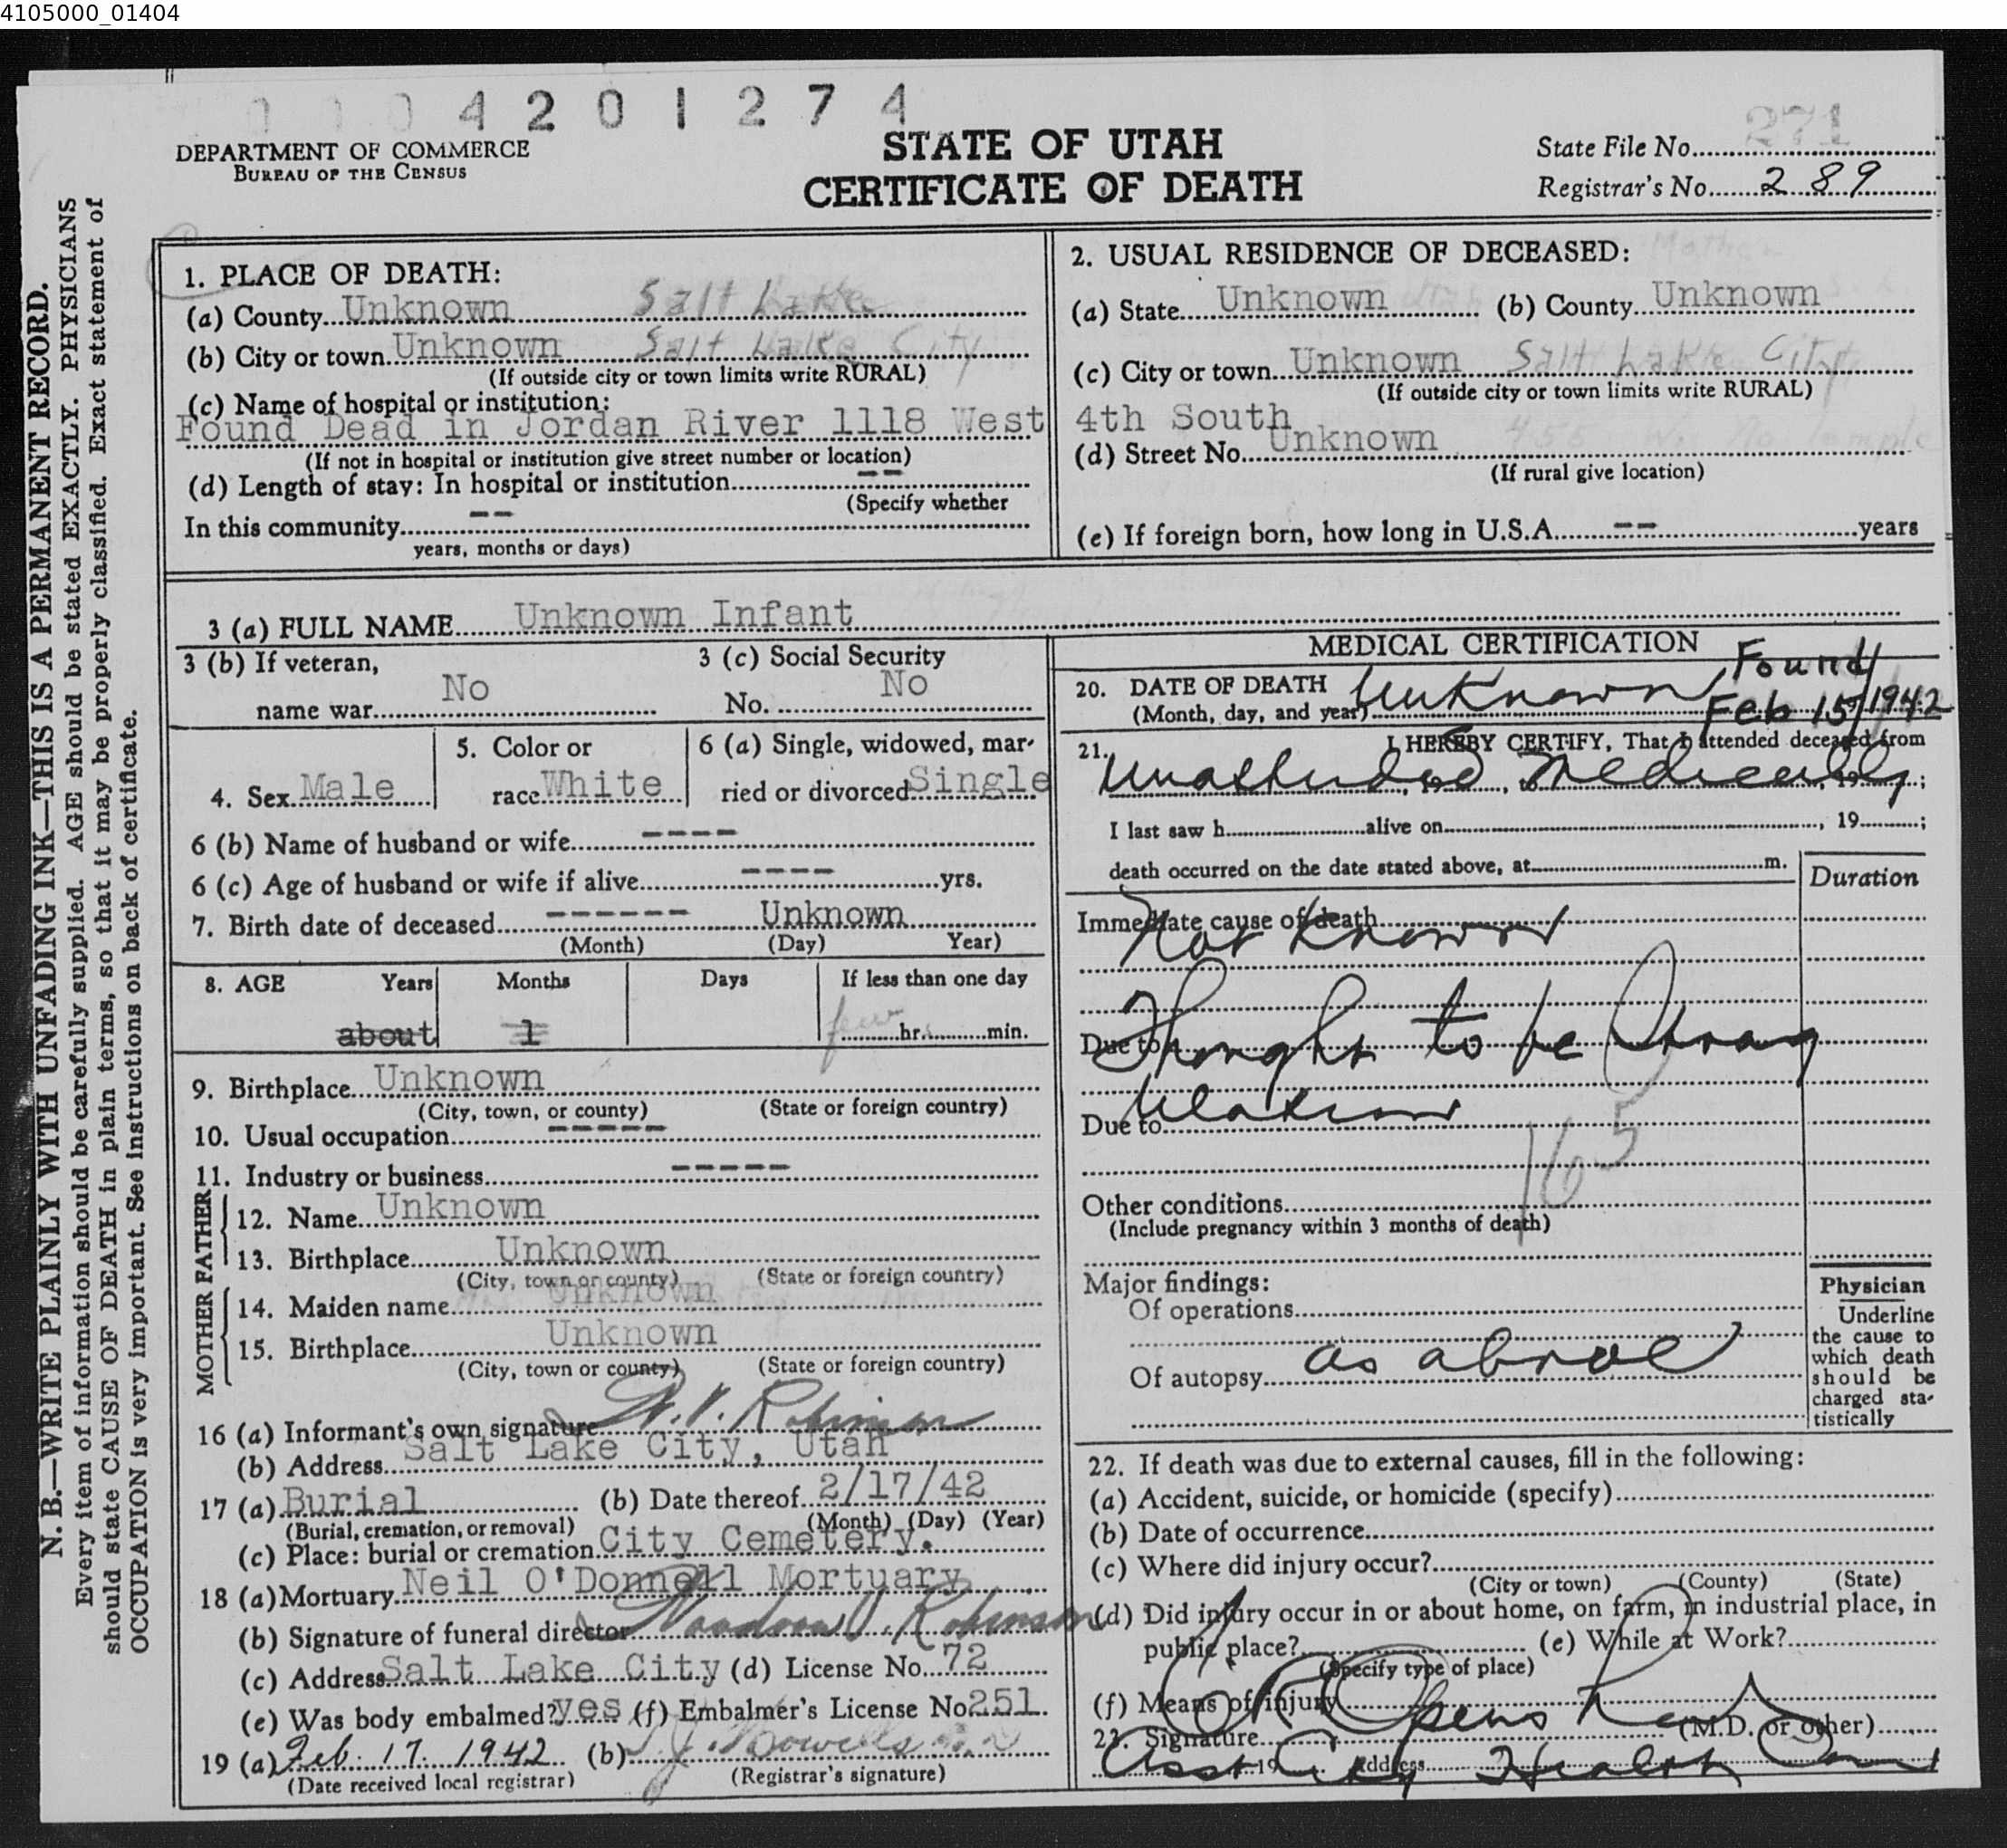 4105000_01404
0004201274
DEPARTMENT OF COMMERCE
BUREAU OF THE CENSUS
STATE OF UTAH
CERTIFICATE OF DEATH
State File No. 271
Registrar's No. 289
N. B.—WRITE PLAINLY WITH UNFADING INK—THIS IS A PERMANENT RECORD.
Every item of information should be carefully supplied. AGE should be stated EXACTLY. PHYSICIANS
should state CAUSE OF DEATH in plain terms, so that it may be properly classified. Exact statement of
OCCUPATION is very important. See instructions on back of certificate.
1. PLACE OF DEATH:
(a) County Unknown Salt Lake
(b) City or town Unknown Salt Lake City
(If outside city or town limits write RURAL)
(c) Name of hospital or institution:
Found Dead in Jordan River 1118 West 4th South
(If not in hospital or institution give street number or location)
(d) Length of stay: In hospital or institution --
(Specify whether
In this community --
years, months or days)
2. USUAL RESIDENCE OF DECEASED:
(a) State Unknown (b) County Unknown
(c) City or town Unknown Salt Lake City
(If outside city or town limits write RURAL)
(d) Street No. Unknown 455 W. No Temple
(If rural give location)
(e) If foreign born, how long in U.S.A. -- years
3 (a) FULL NAME Unknown Infant
3 (b) If veteran,
name war No
3 (c) Social Security
No. No
4. Sex Male
5. Color or
race White
6 (a) Single, widowed, mar-
ried or divorced Single
6 (b) Name of husband or wife ----
6 (c) Age of husband or wife if alive ---- yrs.
7. Birth date of deceased ------ Unknown
(Month) (Day) Year)
8. AGE Years Months Days If less than one day
about 1 few hr. min.
9. Birthplace Unknown
(City, town, or county) (State or foreign country)
10. Usual occupation -----
11. Industry or business -----
FATHER
12. Name Unknown
13. Birthplace Unknown
(City, town or county) (State or foreign country)
MOTHER
14. Maiden name Unknown
15. Birthplace Unknown
(City, town or county) (State or foreign country)
16 (a) Informant's own signature W. V. Robinson
(b) Address Salt Lake City, Utah
17 (a) Burial (b) Date thereof 2/17/42
(Burial, cremation, or removal) (Month) (Day) (Year)
(c) Place: burial or cremation City Cemetery.
18 (a) Mortuary Neil O'Donnell Mortuary
(b) Signature of funeral director V. Robinson
(c) Address Salt Lake City (d) License No. 72
(e) Was body embalmed? yes (f) Embalmer's License No. 251
19 (a) Feb. 17. 1942 (b)
(Date received local registrar) (Registrar's signature)
MEDICAL CERTIFICATION
20. DATE OF DEATH Unknown, Found
(Month, day, and year) Feb 15/1942
21. I HEREBY CERTIFY, That I attended deceased from
Unattended, 19, to Medically, 19;
I last saw h alive on , 19 ;
death occurred on the date stated above, at m.
Duration
Immediate cause of death
Not Known
Due to Thought to be Strang
Due to ulation
165
Other conditions
(Include pregnancy within 3 months of death)
Major findings:
Of operations
Of autopsy as above
Physician
Underline
the cause to
which death
should be
charged sta-
tistically
22. If death was due to external causes, fill in the following:
(a) Accident, suicide, or homicide (specify)
(b) Date of occurrence
(c) Where did injury occur?
(City or town) (County) (State)
(d) Did injury occur in or about home, on farm, in industrial place, in
public place? (e) While at Work?
(Specify type of place)
(f) Means of injury
23. Signature (M.D. or other)
Asst City Health 19 Address